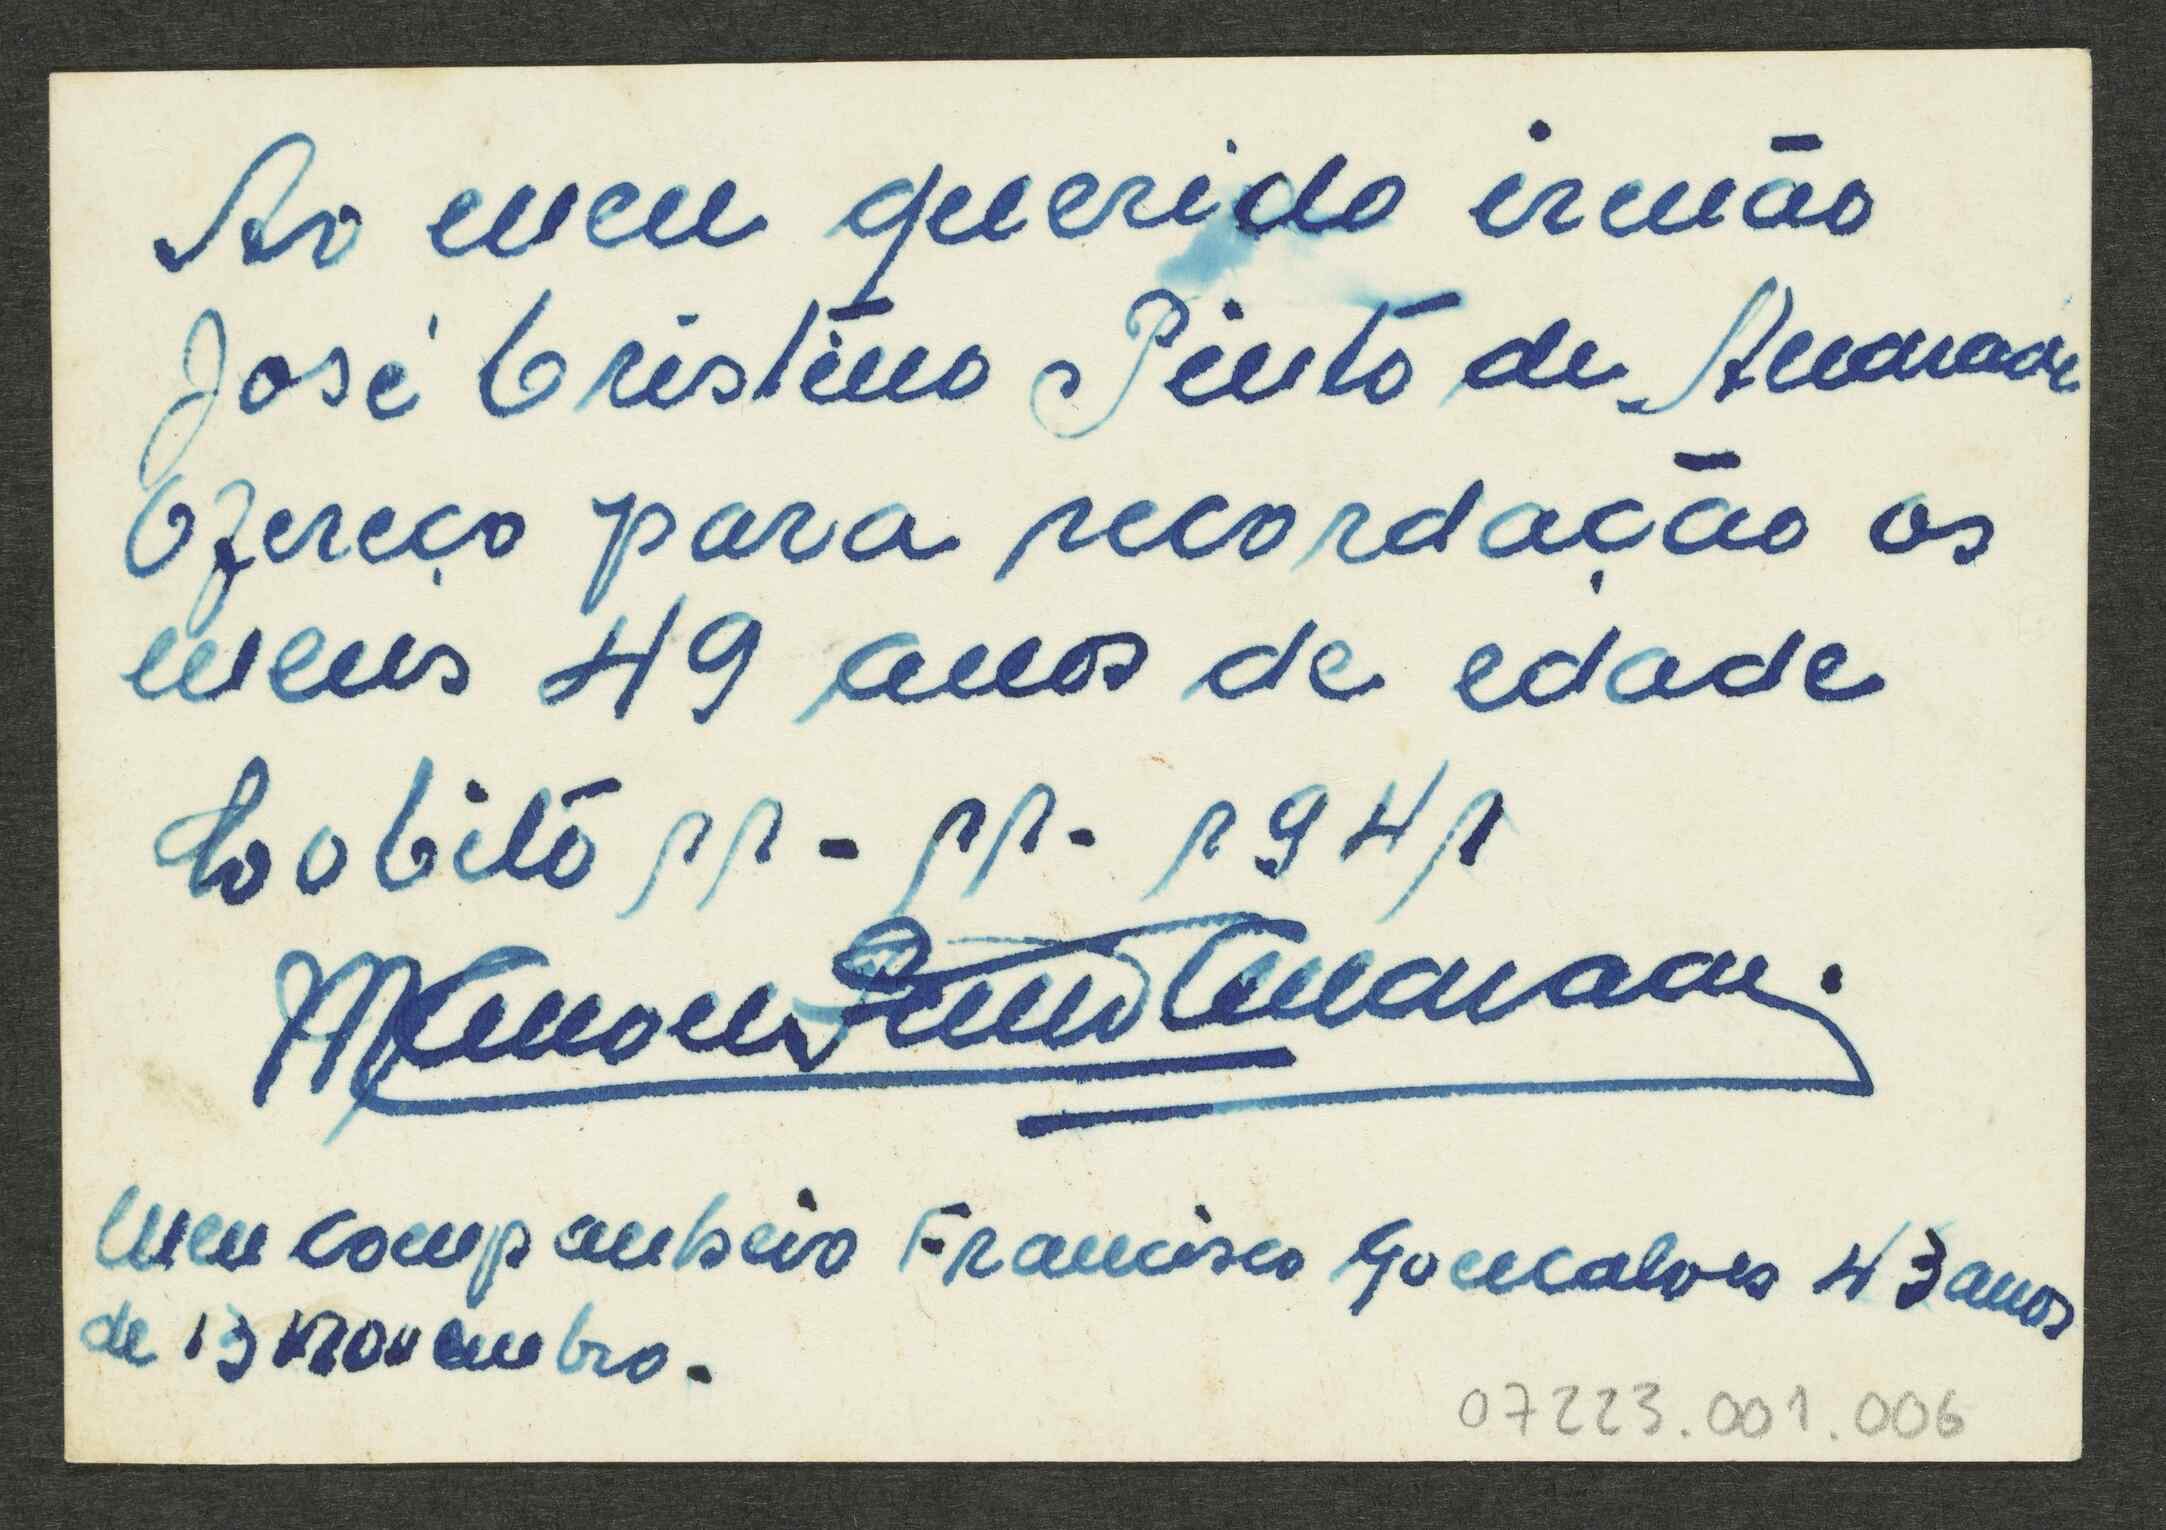 Ao meu querido irmão
José Cristino Pinto de Andrade
Ofereço para recordação os
meus 49 anos de edade
Lobito 11-11-1941
Manoel Pinto Andrade.
Meu companheiro Francisco Goncalves 43 anos
de 13 novembro.
07223.001.006